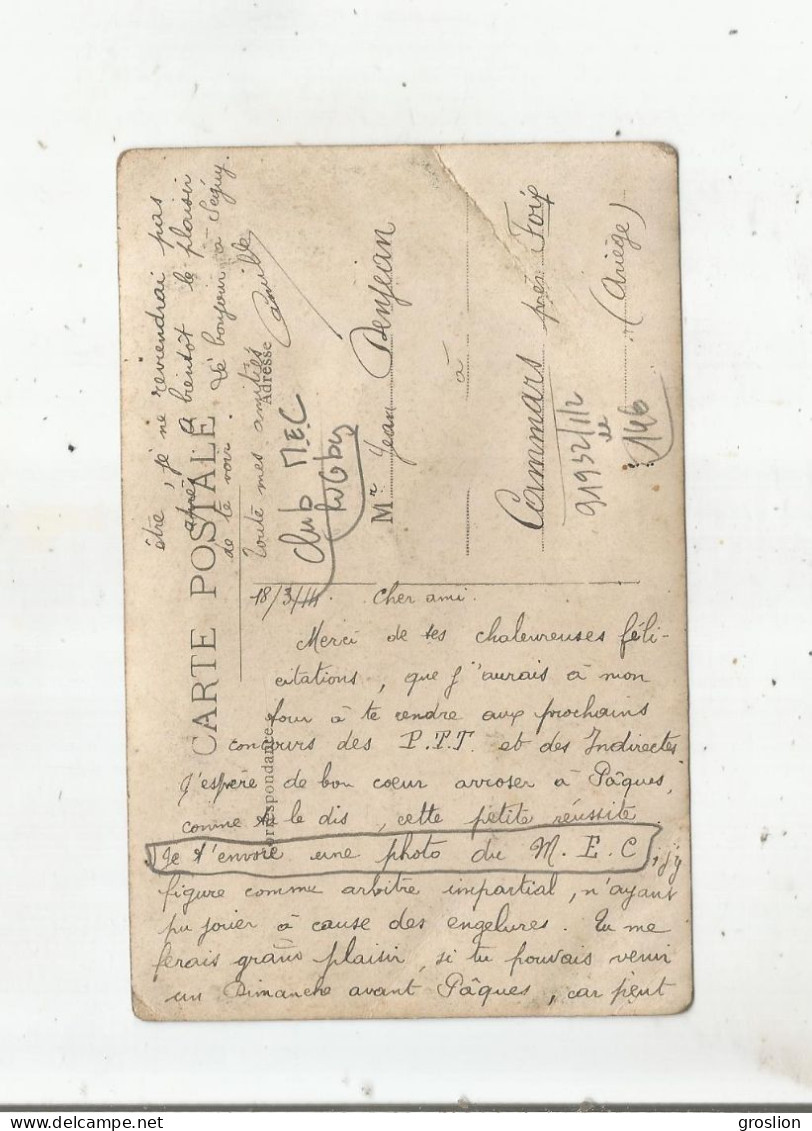 18/3/14. Cher ami.
Merci de tes chaleureuses féli-
citations, que j'aurais à mon
tour à te rendre aux prochains
concours des P.T.T. et des Indirectes
J'espère de bon coeur arroser à Pâques,
comme tu le dis, cette petite réussite.
Je t'envoie une photo du M.E.C, j'y
figure comme arbitre impartial, n'ayant
pu jouer à cause des engelures. Tu me
ferais grand plaisir, si tu pouvais venir
un Dimanche avant Pâques, car peut
être, je ne reviendrai pas
après. A bientôt le plaisir
de te voir. dé bonjour à Seguy.
Toute mes amitiés
Camille
CARTE POSTALE
Correspondance
Adresse
Club M.E.C
Rugby
Mr Jean Denjean
à
Cammars près Foix
(Ariège)
91932/1/2
146
groslion